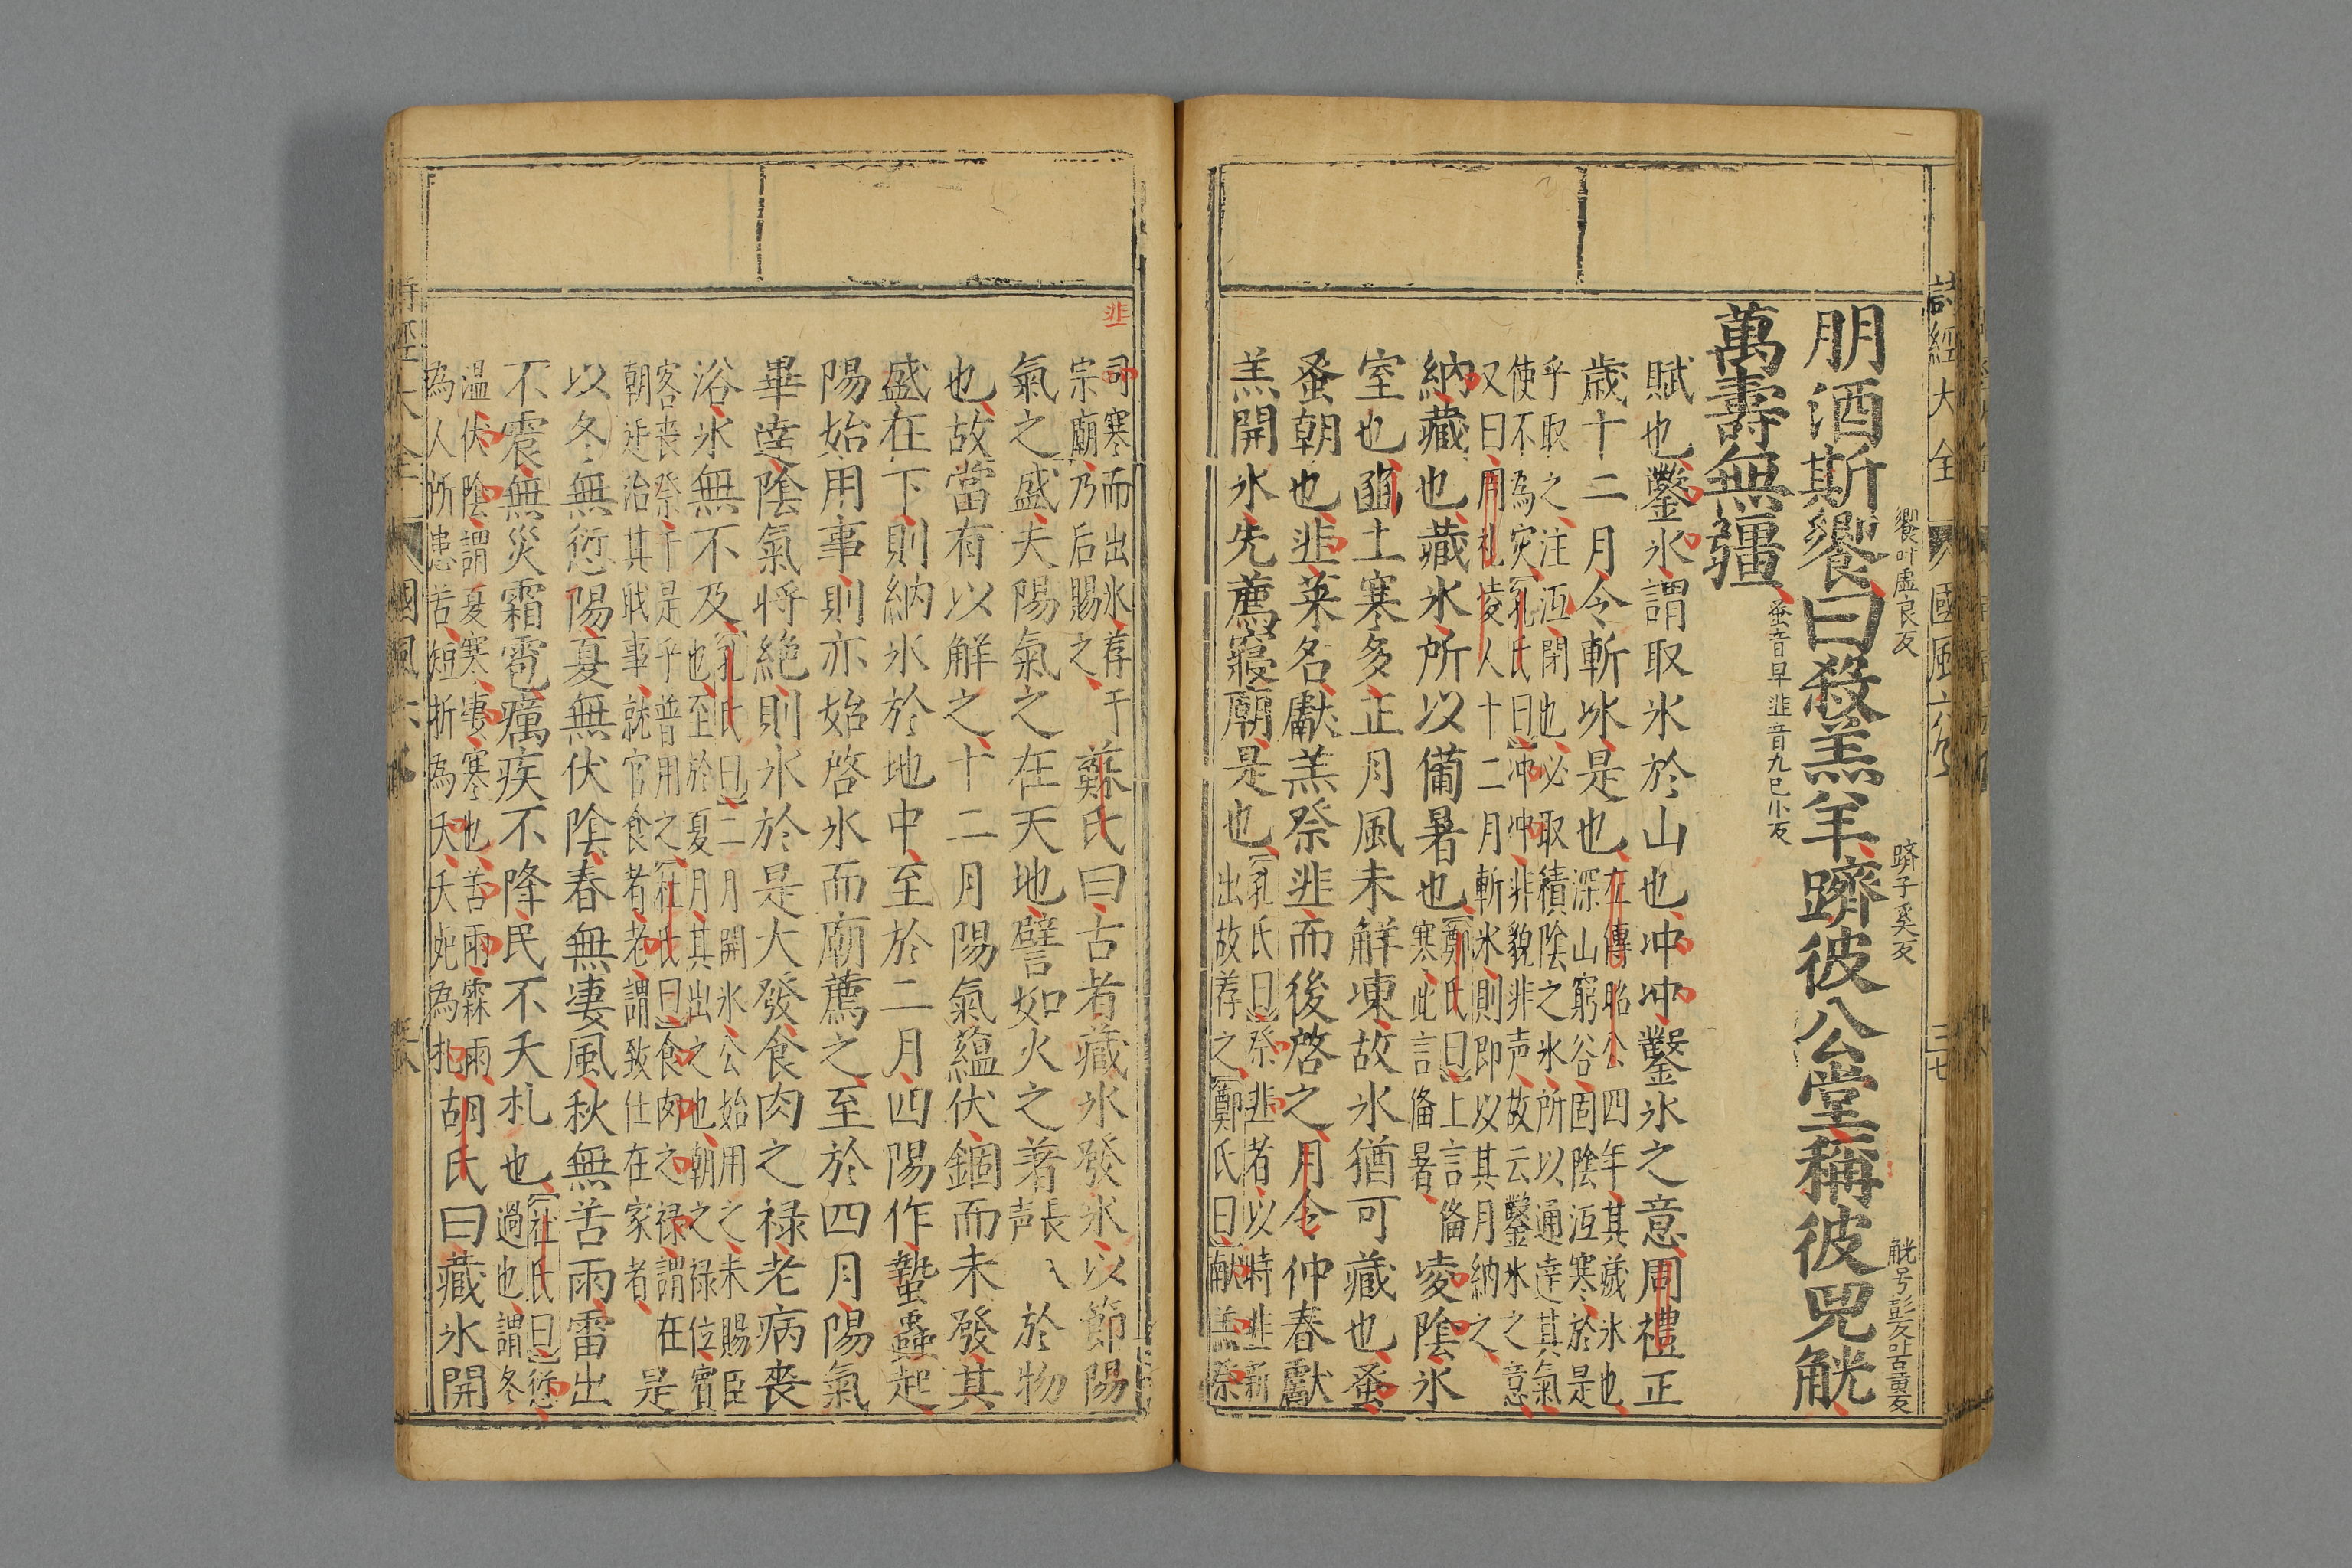 詩經大全 國風六 三七
朋酒斯饗曰殺羔羊躋彼公堂稱彼兕觥
饗叶虛良反 躋子奚反 觥号彭反叶古黃反
萬壽無疆
蚤音早 韭音九己小反
賦也鑿氷謂取氷於山也冲冲鑿氷之意周禮正
歲十二月令斬氷是也
左傳昭公四年其歲氷也
深山窮谷固陰沍寒於是
乎取之注沍閉也必取積陰之氷所以通達其氣
使不為災孔氏曰冲冲非貌非声故云鑿氷之意
又曰周礼凌人十二月斬氷則即以其月納之
納藏也藏氷所以備暑也
鄭氏曰上言俻
寒此言俻暑
凌陰氷
室也豳土寒多正月風未觧凍故氷猶可藏也蚤
蚤朝也韭菜名獻羔祭韭而後啓之月令仲春獻
羔開氷先薦寢廟是也
孔氏曰祭韭者以時韭新
出故荐之鄭氏曰献羔祭
韭
司寒而出氷荐于
宗廟乃后賜之
蘇氏曰古者藏氷發氷以節陽
氣之盛夫陽氣之在天地譬如火之著
長
声
於物
也故當有以解之十二月陽氣蘊伏錮而未發其
盛在下則納氷於地中至於二月四陽作蟄蟲起
陽始用事則亦始啓氷而廟薦之至於四月陽氣
畢達陰氣將絶則氷於是大發食肉之禄老病喪
浴氷無不及
孔氏曰二月開氷公始用之未賜臣
也至於夏月其出之也朝之禄位賓
客喪祭于是乎普用之杜氏曰食肉之禄謂在
朝廷治其職事就官食者老謂致仕在家者
是
以冬無愆陽夏無伏陰春無凄風秋無苦雨雷出
不震無災霜雹癘疾不降民不夭札也
杜氏曰愆
過也謂冬
温伏陰謂夏寒凄寒也苦雨霖雨
為人所患苦短折為夭夭死為札
胡氏曰藏氷開
詩經大全 國風六